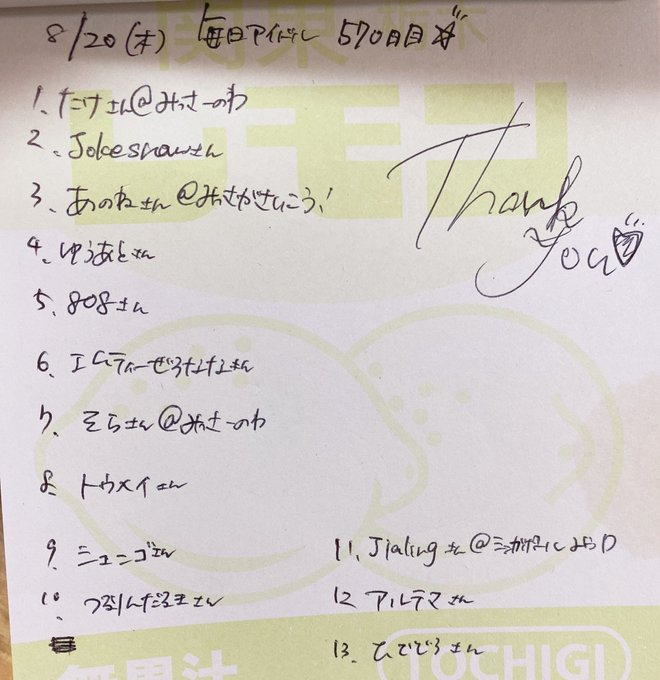 8/20(木) 毎日アイドル 570日目☆
1. たけさん@みっさーのわ
2. Jokesnowさん
3. あのねさん@みっさがさいこう!
4. ゆうあとさん
5. 808さん
6. エムティーぜろななさん
7. そらさん@みっさーのわ
8. トウメイさん
9. シュンゴさん
10. さん
11. Jialingさん@
12. アルテマさん
13. ひでどろさん
Thank
You♡
関東・栃木
レモン
無果汁
TOCHIGI